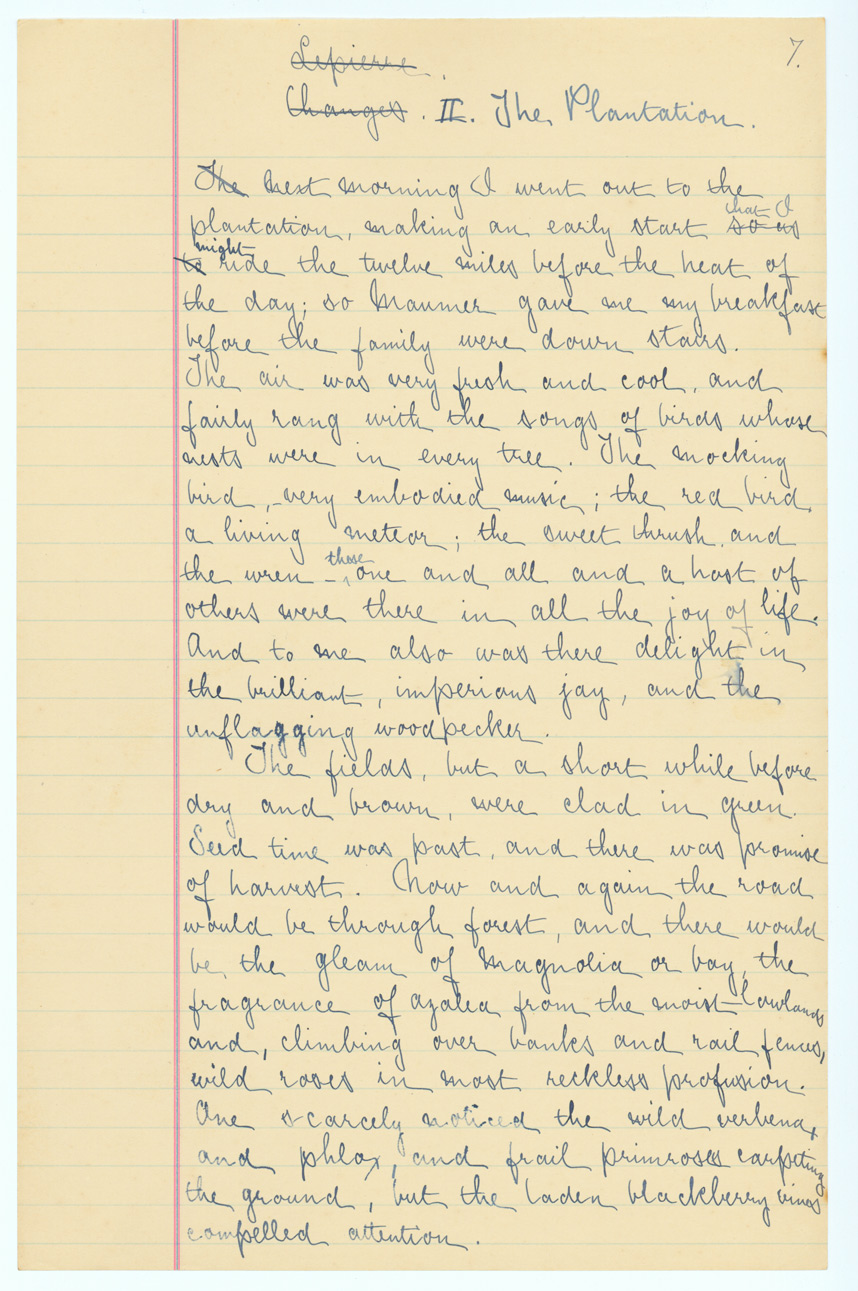 7.
Lepierre.
Changes. II. The Plantation.
The next morning I went out to the
that I
plantation, making an early start so as
might
to ride the twelve miles before the heat of
the day; so Maumer gave me my breakfast
before the family were down stairs.
The air was very fresh and cool, and
fairly rang with the songs of birds whose
nests were in every tree. The mocking
bird, - very embodied music; the red bird,
a living meteor; the sweet thrush, and
these
the wren - one and all and a host of
others were there in all the joy of life.
And to me also was there delight in
the brilliant, imperious jay, and the
unflagging woodpecker.
The fields, but a short while before
dry and brown, were clad in green.
Seed time was past, and there was promise
of harvest. Now and again the road
would be through forest, and there would
be, the gleam of magnolia or bay, the
fragrance of azalea from the moist lowlands
and, climbing over banks and rail fences,
wild roses in most reckless profusion.
One scarcely noticed the wild verbena,
and phlox, and frail primroses carpeting
the ground, but the laden blackberry vines
compelled attention.